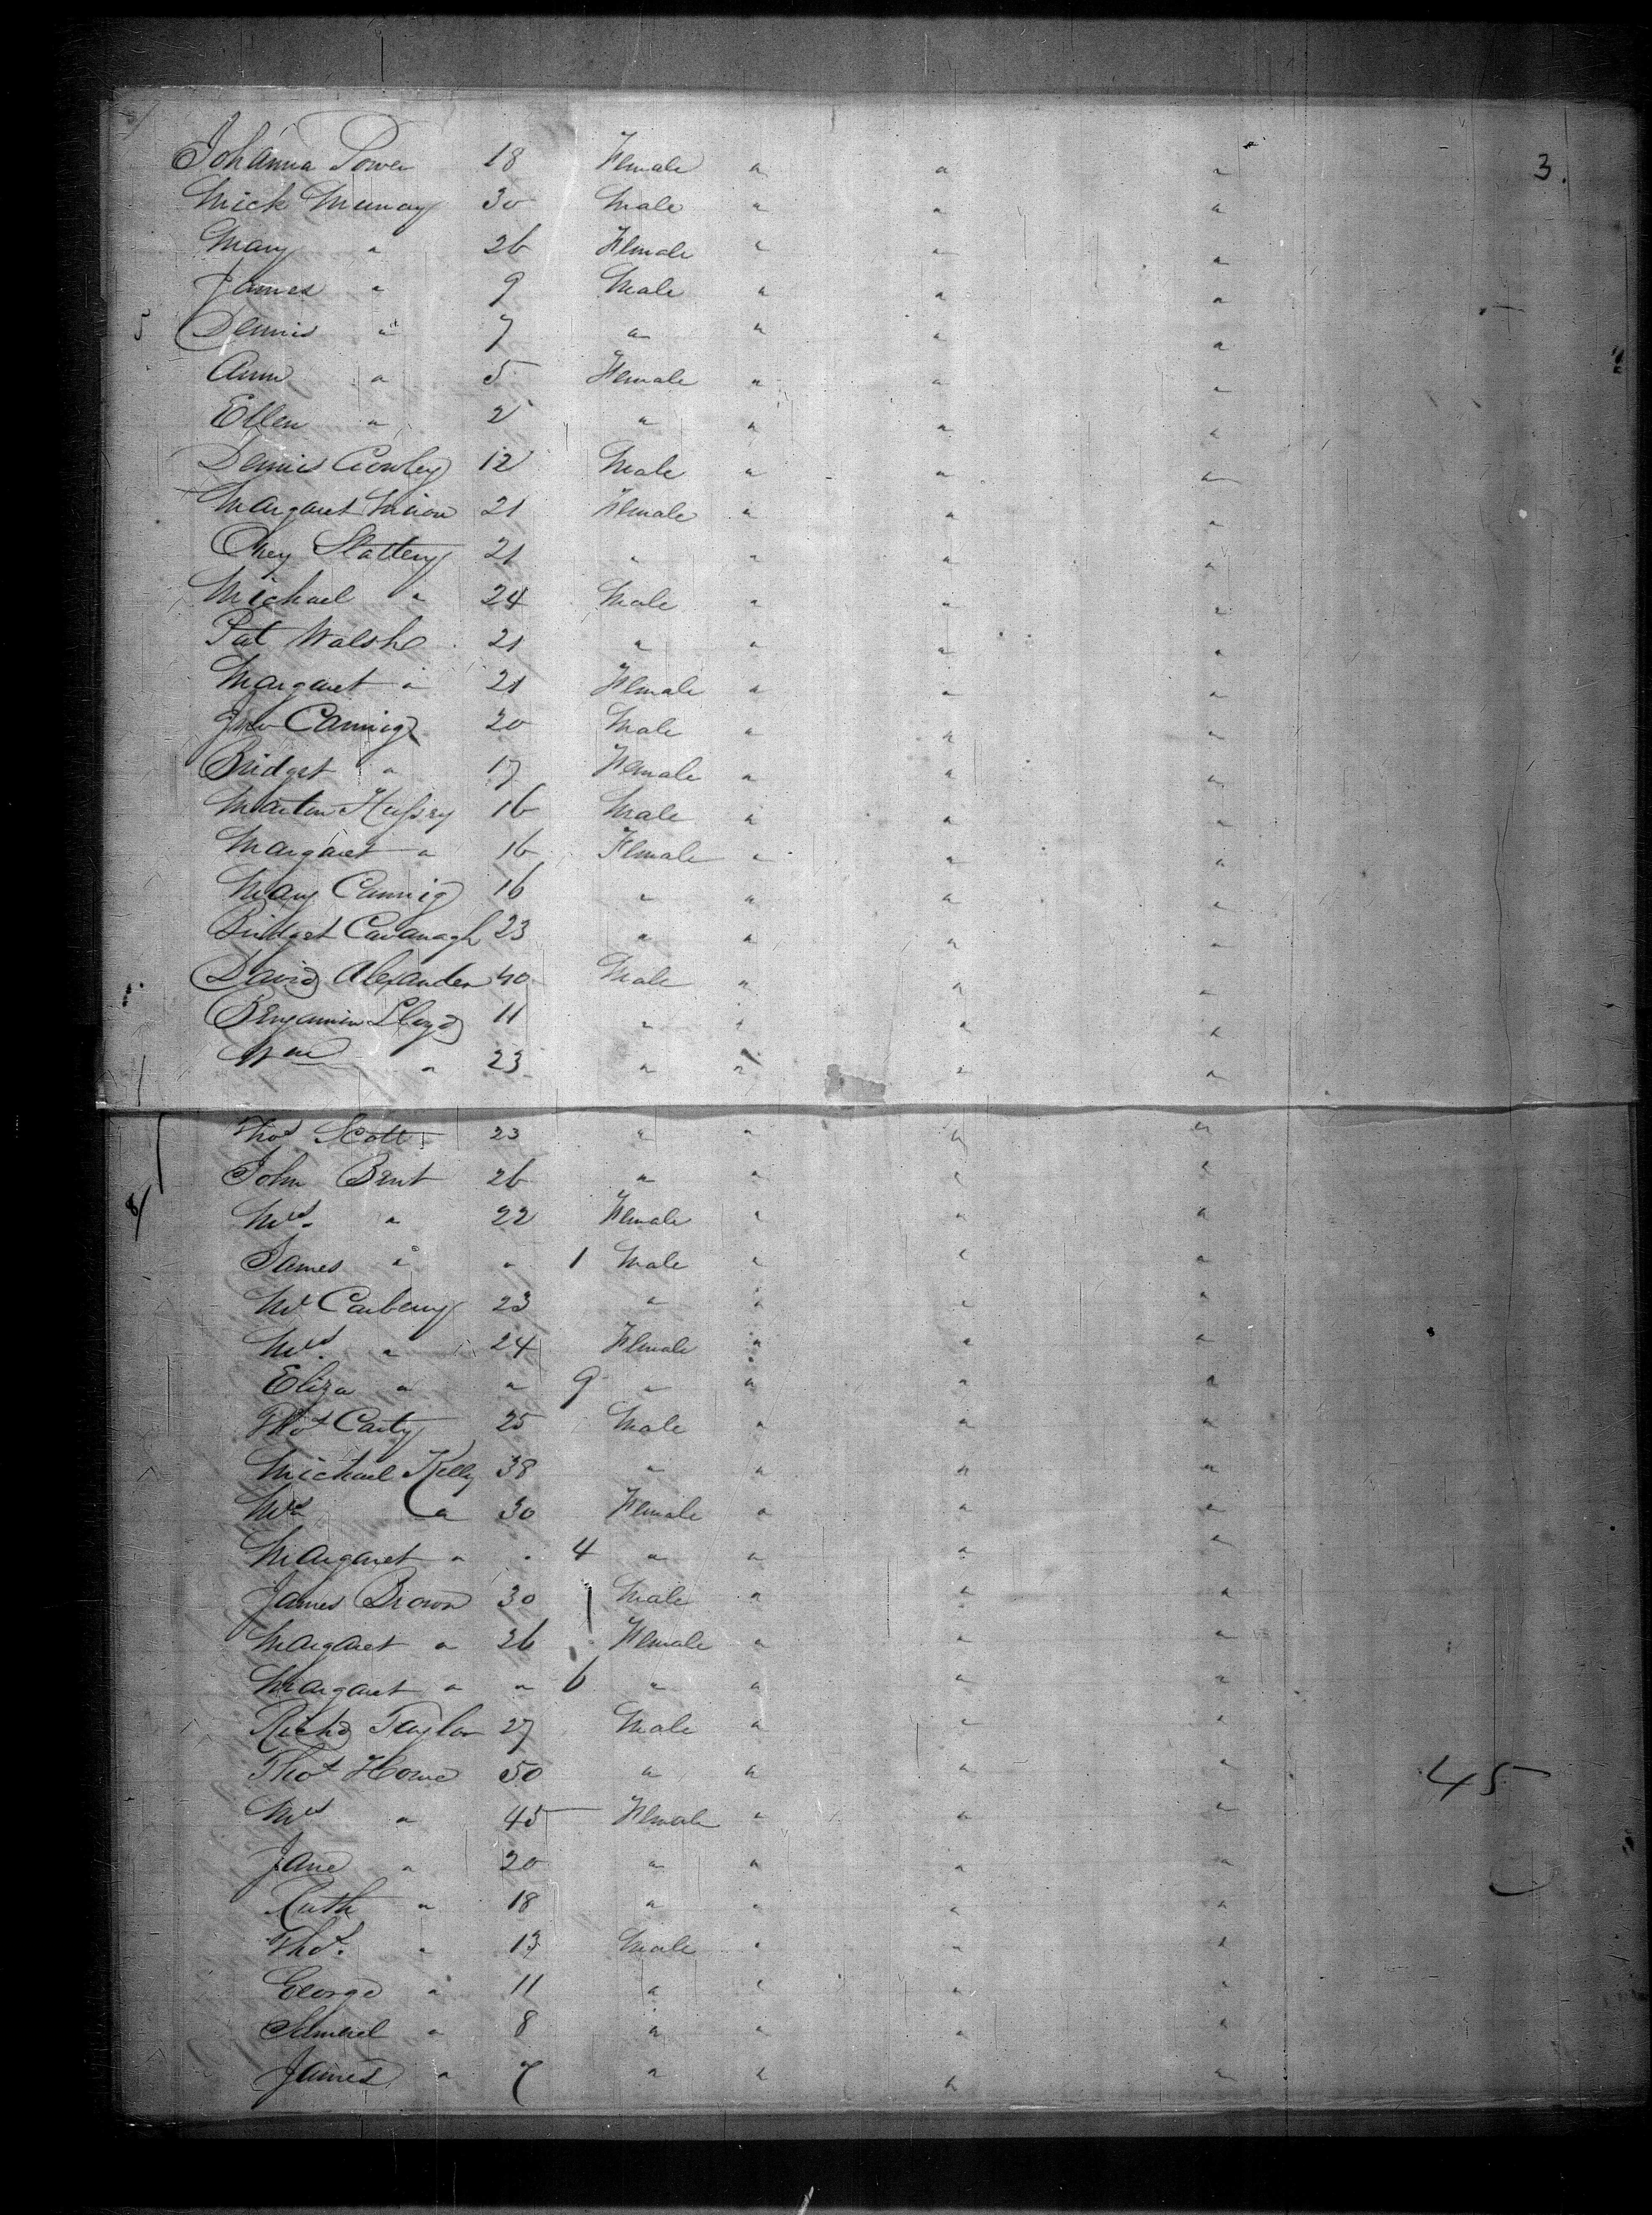 3.
Johanna Power 18 Female " " "
Mick Murray 30 Male " " "
Mary " 26 Female " " "
James " 9 Male " " "
5 Dennis " 7 " " " "
Ann " 5 Female " " "
Ellen " 2 " " " "
Dennis Cronley 12 Male " " "
Margaret 21 Female " " "
Slattery 21 " " " "
Michael " 24 Male " " "
Pat Walsh 21 " " " "
Margaret " 21 Female " " "
Jno Cannig 20 Male " " "
Bridget " 17 Female " " "
Martin Hussey 16 Male " " "
Margaret " 16 Female " " "
Mary Cannig 16 " " " "
Bridget Cavanagh 23 " " " "
David Alexander 40 Male " " "
Benjamin Lloyd 11 " " " "
Wm " 23 " " " "
Thos Scott 23 " " " "
John Bent 26 " " " "
Mrs " 22 Female " " "
James " " 1 Male " " "
Mr Carberry 23 " " " "
Mrs. " 24 Female " " "
Eliza " " 9 " " " "
Thos Carty 25 Male " " "
Michael Kelly 38 " " " "
Mrs " 30 Female " " "
Margaret " " 4 " " " "
James Brown 30 Male " " "
Margaret " 26 Female " " "
Margaret " " 6 " " " "
Richd Taylor 27 Male " " "
Thos Howe 50 " " " " 45
Mrs " 45 Female " " "
Jane " 20 " " " "
Ruth " 18 " " " "
Thos. " 13 Male " " "
George " 11 " " " "
" 8 " " " "
James " 7 " " " "